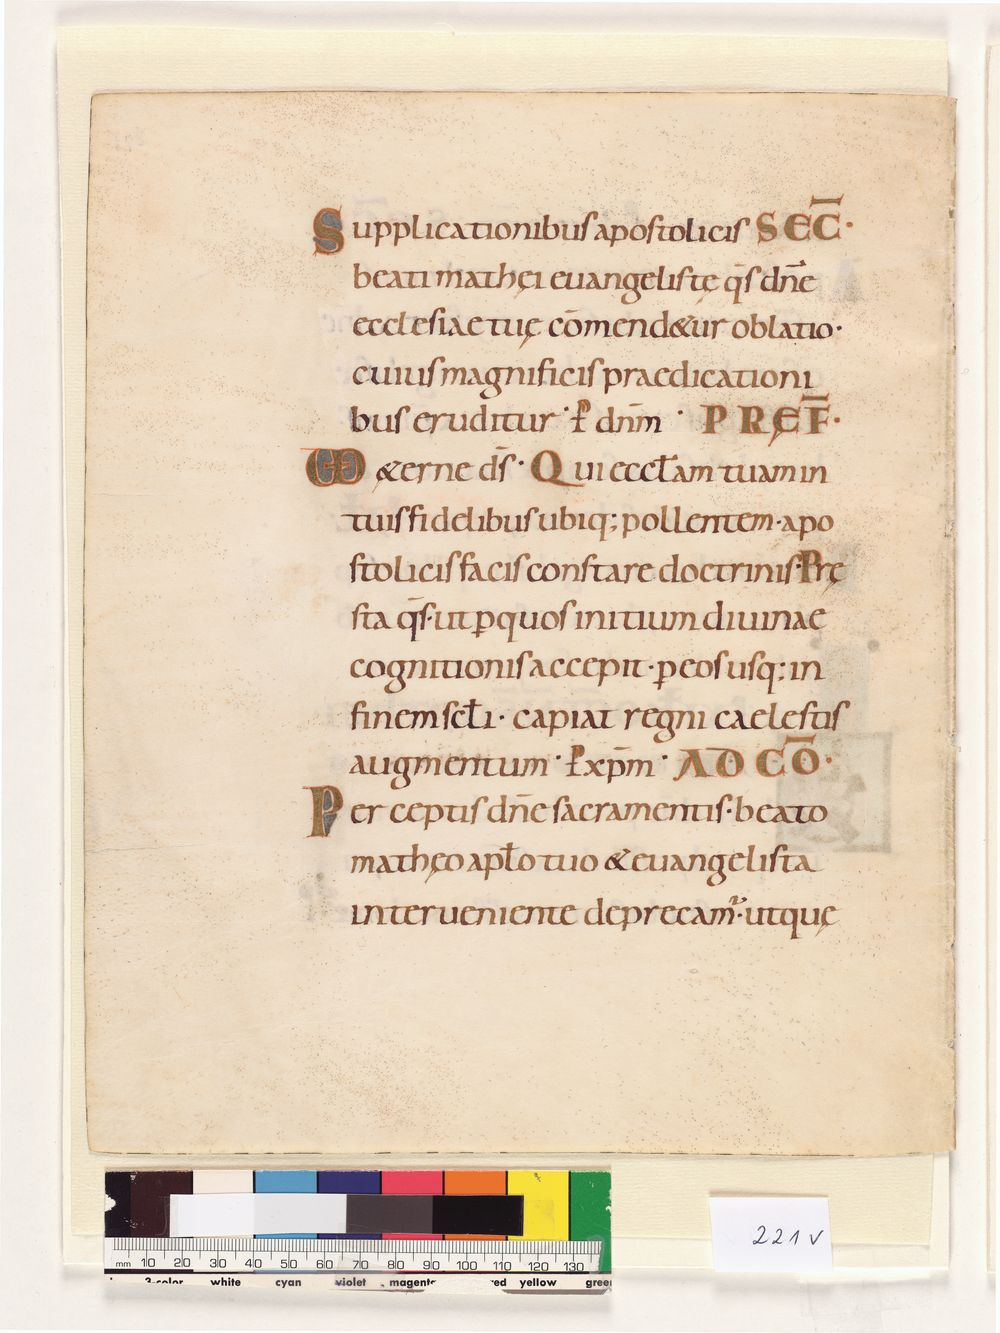 Supplicationibus apostolicis SEC̅·
beati mathęi euangelistę q̄s dn̄e
ecclesiae tuę cōmend&ur oblatio·
cuius magnificis praedicationi
bus eruditur· P̄ dn̄m· PREF̅·
UD &erne d̄s· Qui eccłam tuam in
tuis fidelibus ubiq; pollentem· apo
stolicis facis constare doctrinis· Prę
sta q̄s· ut ꝑ quos initium diuinae
cognitionis accepit· ꝑ eos usq; in
finem scłi· capiat regni caelestis
augmentum· P̄ xp̄m· AD CŌ·
Perceptis dn̄e sacramentis· beato
mathęo apło tuo & euangelista
interueniente deprecam̄· utquę
221v
mm 10 20 30 40 50 60 70 80 90 100 110 120 130
3-color white cyan violet magenta red yellow green